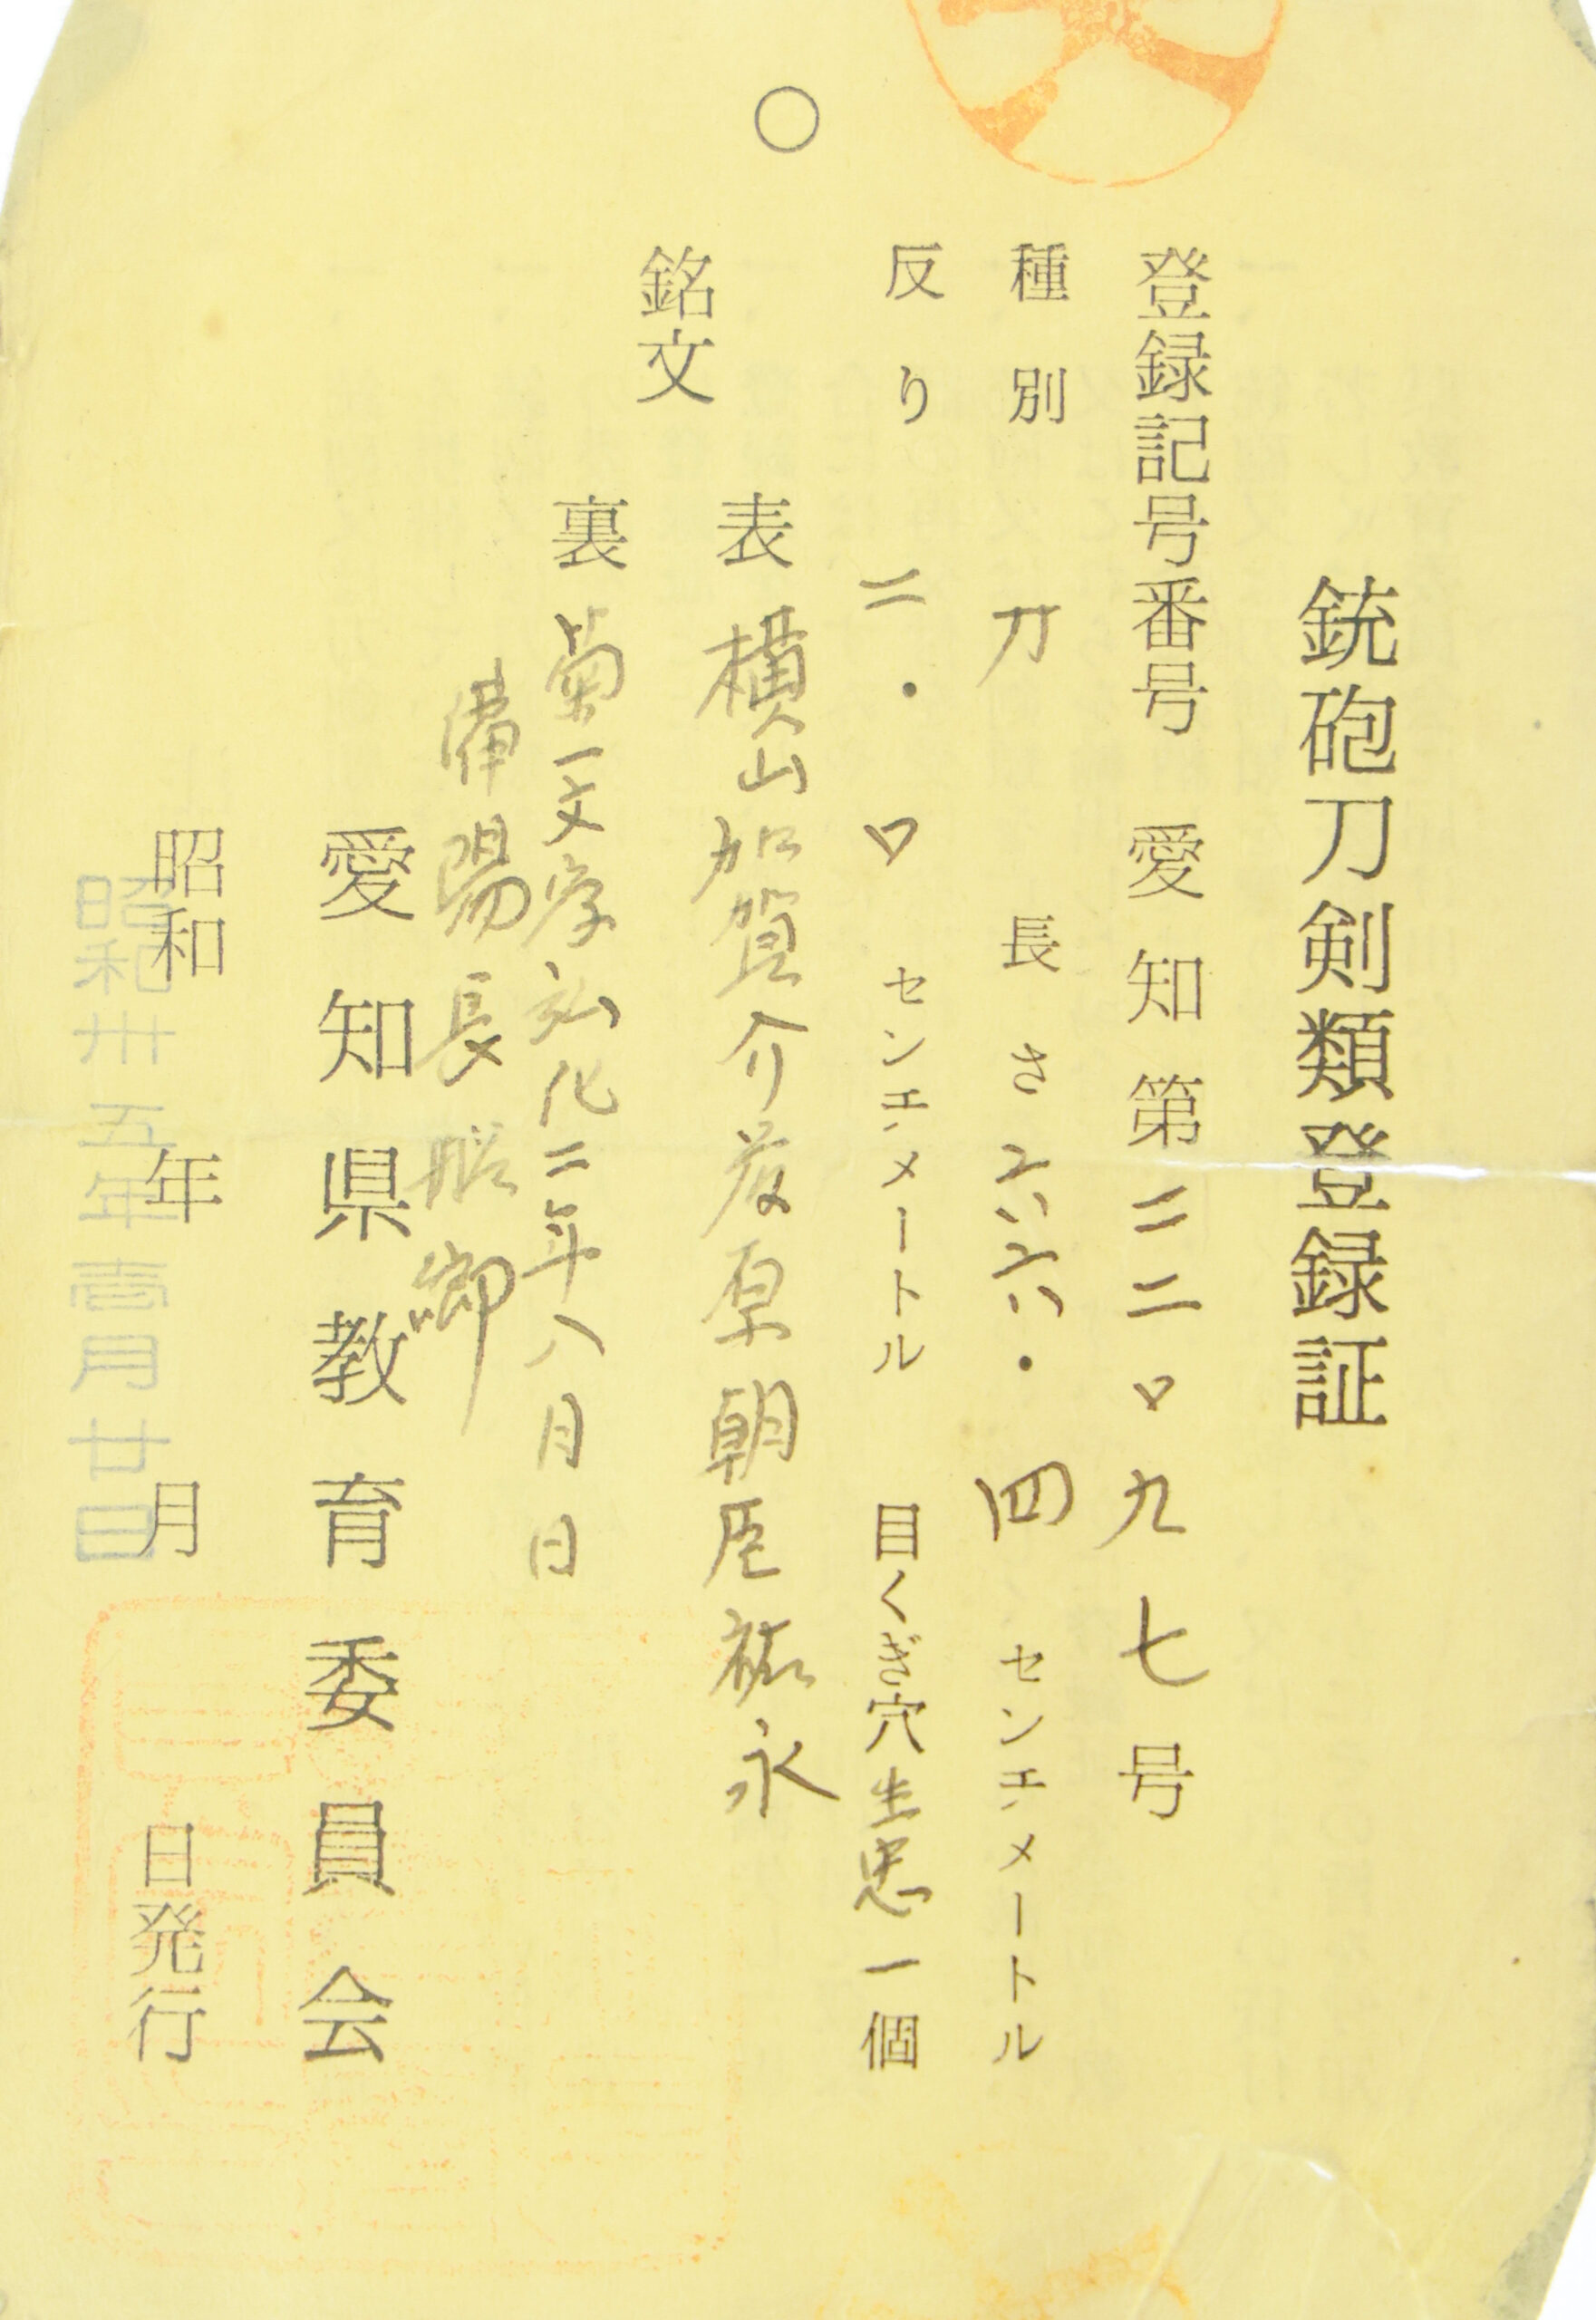 銃砲刀剣類登録証
登録記号番号 愛知第二二〇九七号
種別 刀 長さ 六六・四 センチメートル
反り 二・〇 センチメートル 目くぎ穴 生忠 一個
銘文
表 横山加賀介藤原朝臣祐永
裏 菊一文字弘化二年八月日
備陽長船郷
愛知県教育委員会
昭和 年 月 日発行
昭和卅五年壹月廿日